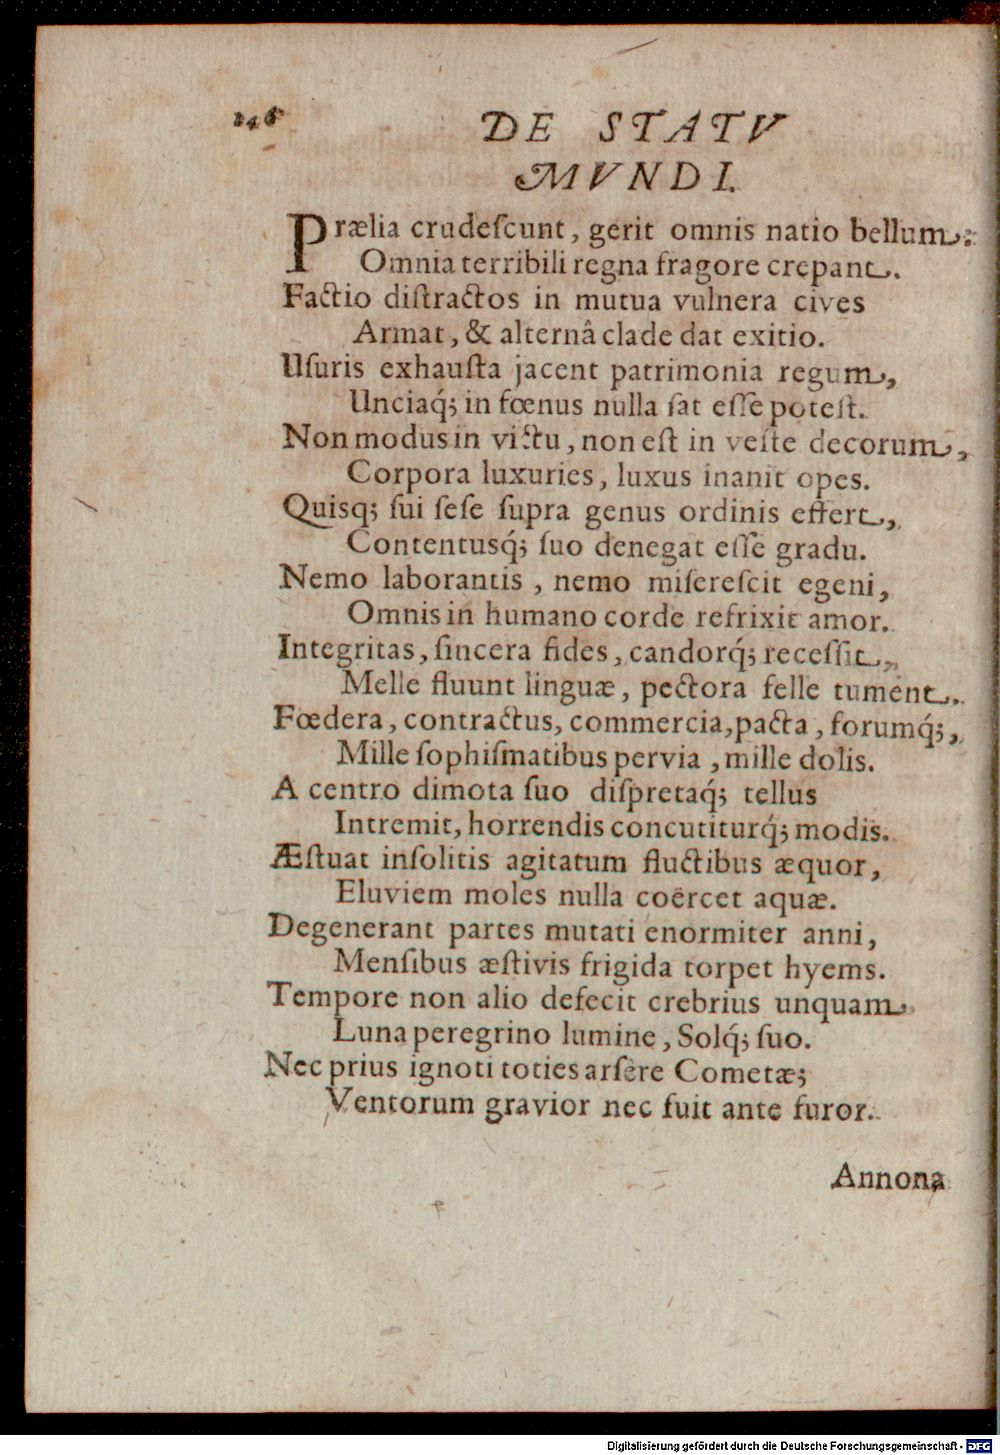 246
DE STATV
MVNDI.
Prælia crudeſcunt, gerit omnis natio bellum:
Omnia terribili regna fragore crepant.
Factio diſtractos in mutua vulnera cives
Armat, & alternâ clade dat exitio.
Uſuris exhauſta jacent patrimonia regum,
Unciaq́; in fœnus nulla ſat eſſe poteſt.
Non modus in victu, non eſt in veſte decorum,
Corpora luxuries, luxus inanit opes.
Quisq; ſui ſeſe ſupra genus ordinis effert,
Contentusq́; ſuo denegat eſſe gradu.
Nemo laborantis, nemo miſereſcit egeni,
Omnis in humano corde refrixit amor.
Integritas, ſincera fides, candorq́; receſſit,
Melle fluunt linguæ, pectora felle tument.
Fœdera, contractus, commercia, pacta, forumq́;,
Mille ſophiſmatibus pervia, mille dolis.
A centro dimota ſuo diſpretaq́; tellus
Intremit, horrendis concutiturq́; modis.
Æſtuat inſolitis agitatum fluctibus æquor,
Eluviem moles nulla coërcet aquæ.
Degenerant partes mutati enormiter anni,
Menſibus æſtivis frigida torpet hyems.
Tempore non alio defecit crebrius unquam
Luna peregrino lumine, Solq́; ſuo.
Nec prius ignoti toties arſêre Cometæ;
Ventorum gravior nec fuit ante furor.
Annona
Digitalisierung gefördert durch die Deutsche Forschungsgemeinschaft - DFG